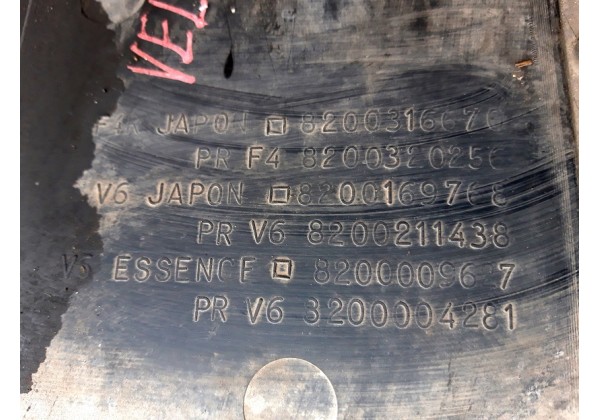 VEL
JAPON 8200316676
PR F4 8200320256
V6 JAPON 8200169768
PR V6 8200211438
V6 ESSENCE 8200009627
PR V6 8200004281